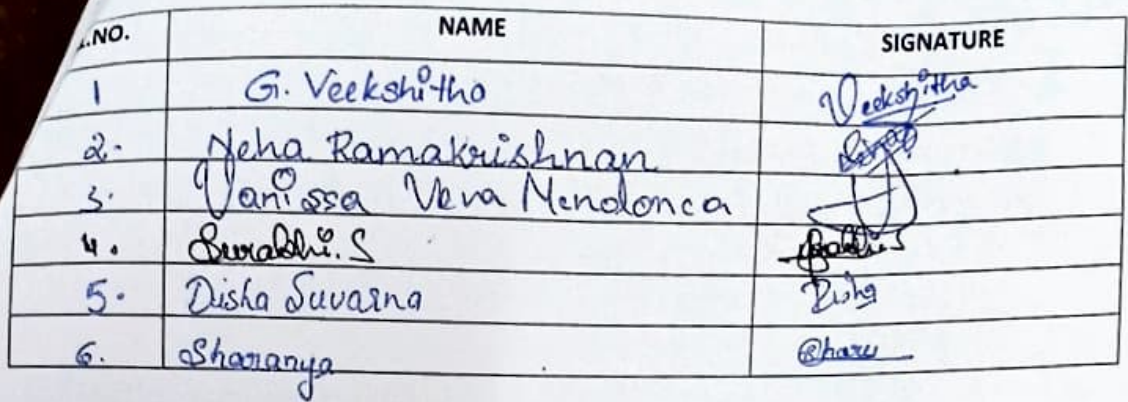 .NO. NAME SIGNATURE
1 G. Veekshitha Veekshitha
2. Neha Ramakrishnan
3. Vanissa Vera Mendonca
4. Surabhi. S
5. Disha Suvarna Disha
6. Sharanya Sharu